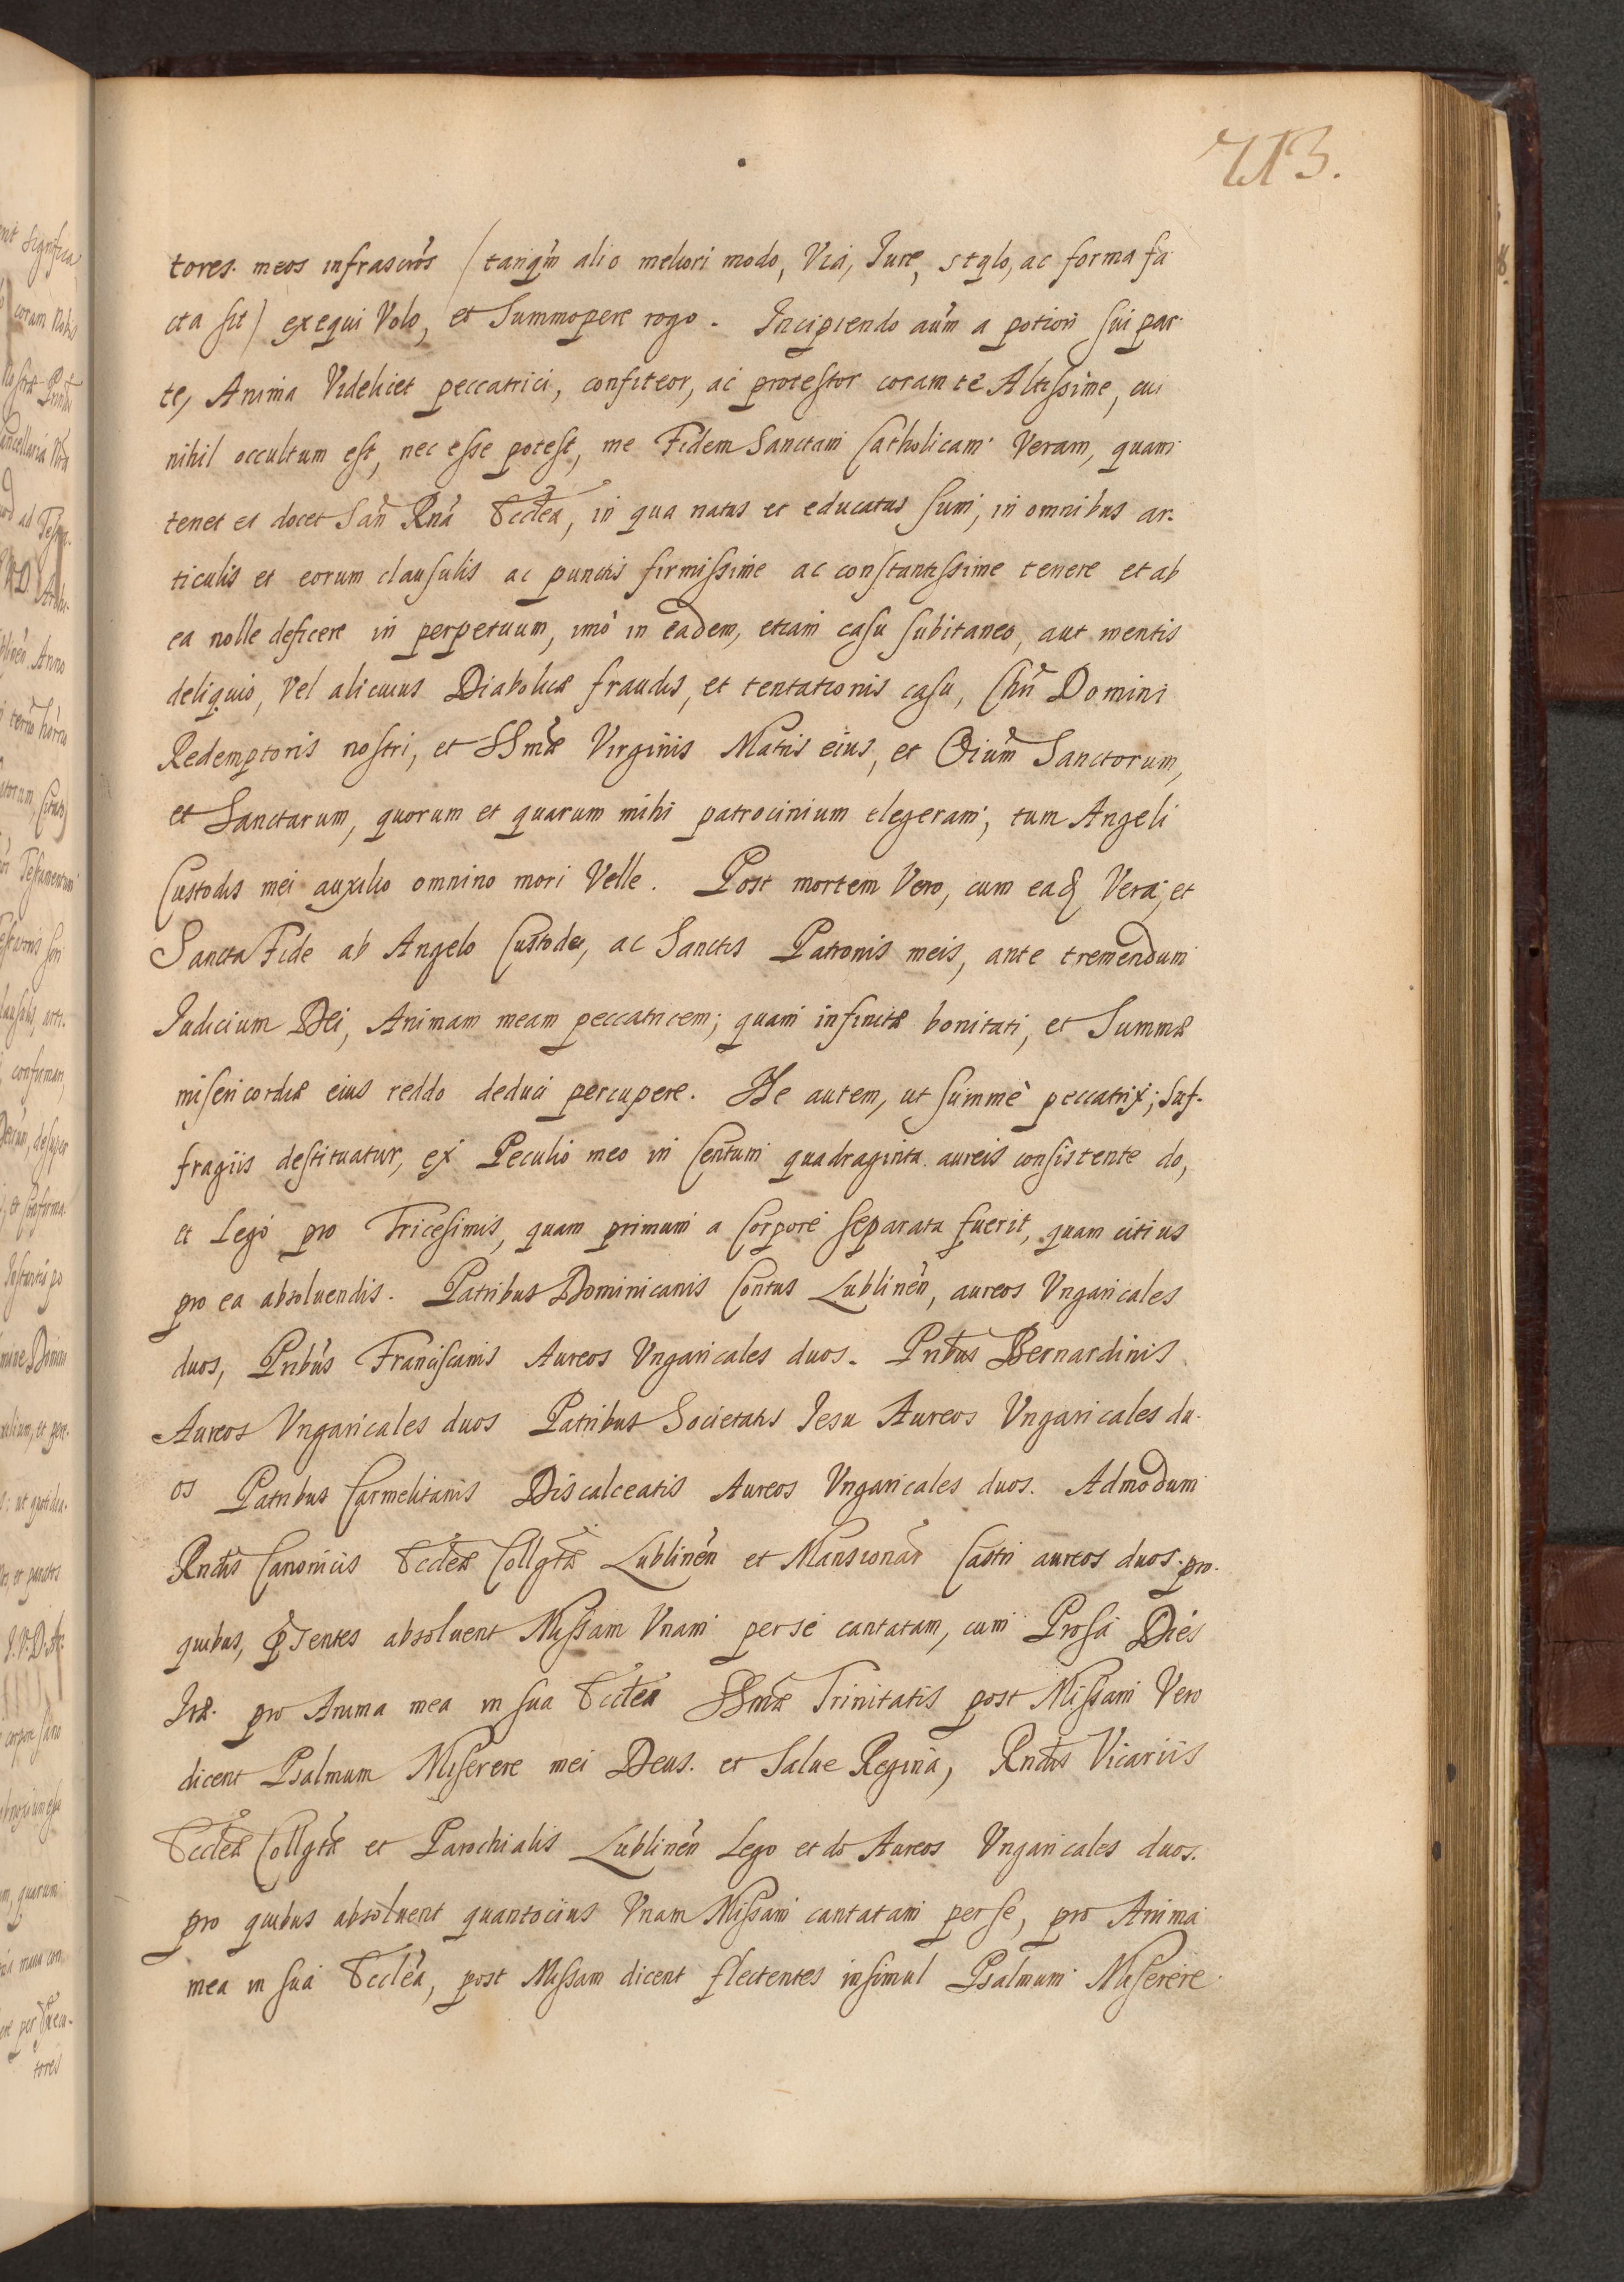 713.
tores. meos infrascros /tanqm alio meliori modo, Via, Iure, stylo, ac forma fa
cta sit/ exequi Volo, et Summopere rogo. Incipiendo aum a potiori sui par-
te, Anima Videlicet peccatrici, confiteor, ac protestor coram te Altissime, cui
nihil occultum est, nec esse potest, me Fidem Sanctam Catholicam Veram, quam
tenet et docet San Rna Ecclea, in qua natus et educatus sum, in omnibus ar-
ticulis et eorum clausulis ac punctis firmissime ac constantissime tenere et ab
ea nolle deficere in perpetuum, imò in eadem, etiam casu subitaneo, aut mentis
deliquio, Vel alicuius Diabolicæ fraudis, et tentationis casu, Chri Domini
Redemptoris nostri, et SSmæ Virginis Matris eius, et Oium Sanctorum,
et Sanctarum, quorum et quarum mihi patrocinium elegeram, tum Angeli
Custodis mei auxilio omnino mori Velle. Post mortem Vero, cum eaq Vera, et
Sancta Fide ab Angelo Custode, ac Sanctis Patronis meis, ante tremendum
Iudicium Dei, Animam meam peccatricem; quam infinitæ bonitati, et Summæ
misericordiæ eius reddo deduci percupere. Ne autem, ut summè peccatrix; suf-
fragiis destituatur, ex Peculio meo in Centum quadraginta aureis consistente do,
et Lego pro Tricesimis, quam primum a Corpore separata fuerit, quam citius
pro ea absoluendis. Patribus Dominicanis Contus Lublinen, aureos Vngaricales
duos, Pribus Franciscanis Aureos Vngaricales duos. Pribus Bernardinis
Aureos Vngaricales duos Patribus Societatis Iesu Aureos Vngaricales du-
os Patribus Carmelitanis Discalceatis Aureos Vngaricales duos. Admodum
Rndis Canonicis Eccleæ Collgtæ Lublinen et Mansionar Castri aureos duos. pro
quibus, pſentes absoluent Missam Vnam per se cantatam, cum Prosa Dies
Iræ. pro Anima mea in sua Ecclea SSmæ Trinitatis post Missam Vero
dicent Psalmum Miserere mei Deus. et Salue Regina, Rndis Vicariis
Eccleæ Collgtæ et Parochialis Lublinen Lego et do Aureos Vngaricales duos.
pro quibus absoluent quantocius Vnam Missam cantatam per se, pro Anima
mea in sua Ecclea, post Missam dicent flectentes insimul Psalmum Miserere